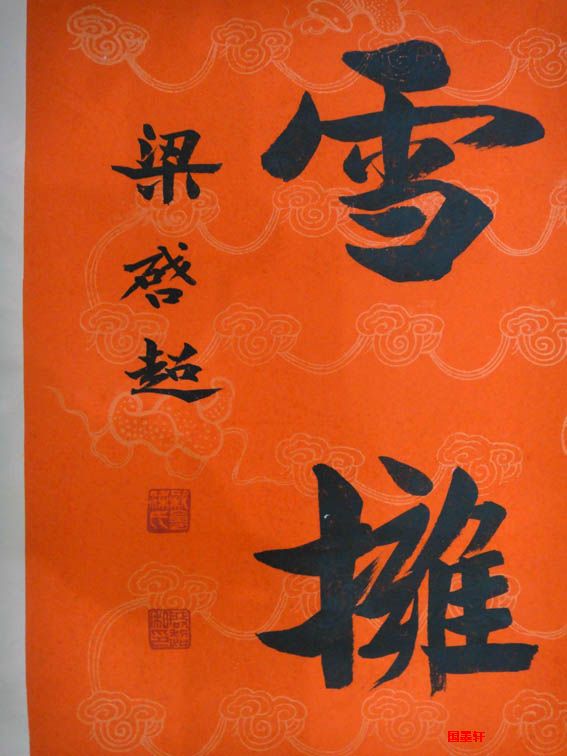 雪擁
梁啓超
国墨轩